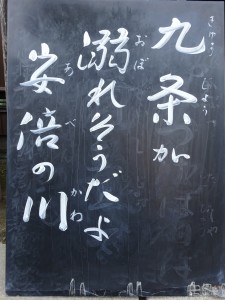 九条が
溺れそうだよ
安倍の川
きゅう
じょう
おぼ
あべ
かわ